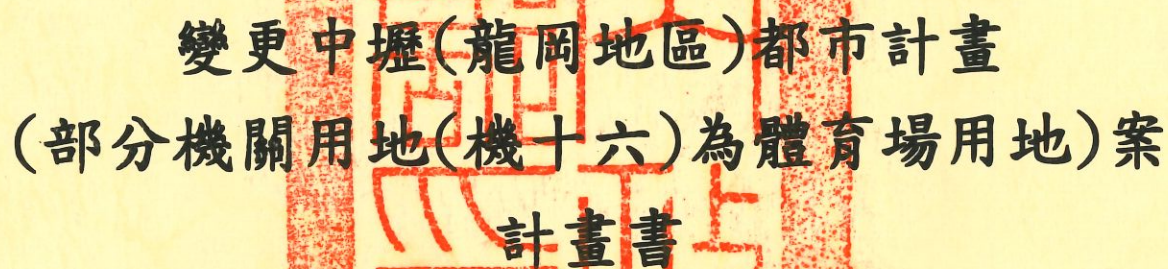 變更中壢(龍岡地區)都市計畫
(部分機關用地(機十六)為體育場用地)案
計畫書